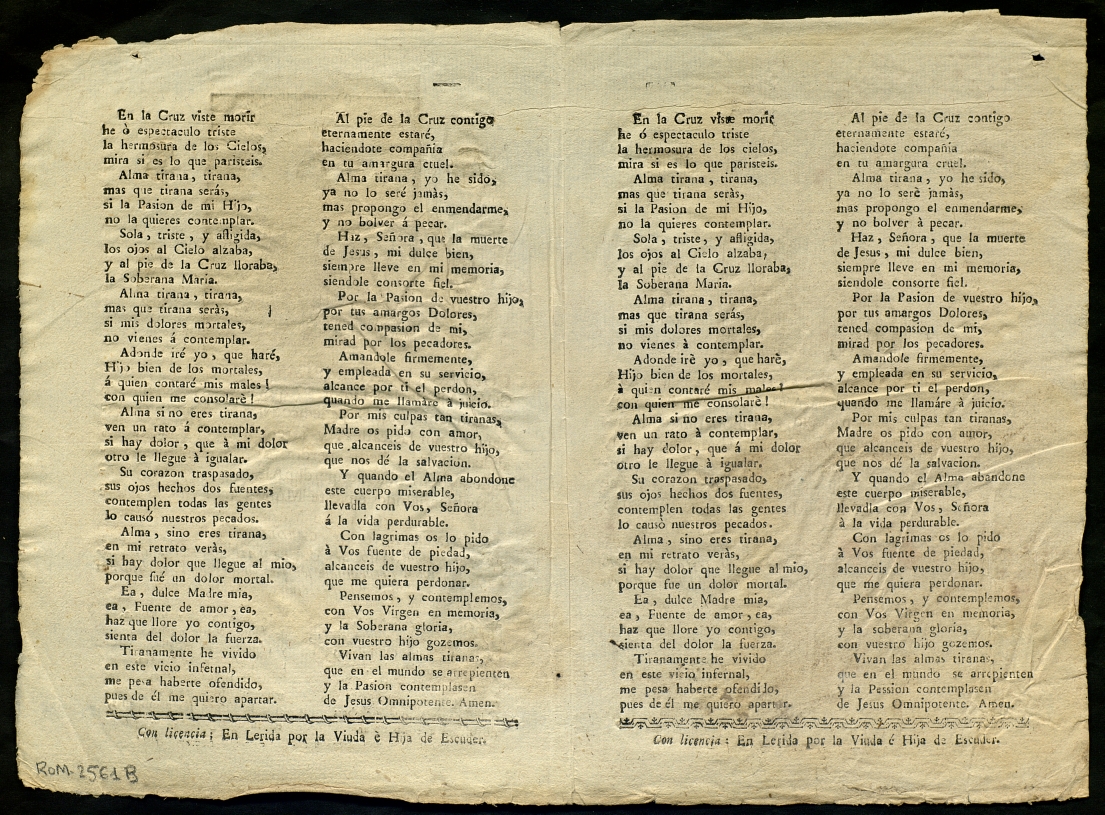 En la Cruz viste morir
he ò espectaculo triste
la hermosura de los Cielos,
mira si es lo que paristeis.
Alma tirana, tirana,
mas que tirana serás,
si la Pasion de mi Hijo,
no la quieres contemplar.
Sola, triste, y afligida,
los ojos al Cielo alzaba,
y al pie de la Cruz lloraba,
la Soberana Maria.
Alma tirana, tirana,
mas que tirana seràs,
si mis dolores mortales,
no vienes á contemplar.
Adonde iré yo, que haré,
Hijo bien de los mortales,
á quien contaré mis males!
con quien me consolarè!
Alma si no eres tirana,
ven un rato á contemplar,
si hay dolor, que à mi dolor
otro le llegue à igualar.
Su corazon traspasado,
sus ojos hechos dos fuentes,
contemplen todas las gentes
lo causó nuestros pecados.
Alma, sino eres tirana,
en mi retrato veràs,
si hay dolor que llegue al mio,
porque fué un dolor mortal.
Ea, dulce Madre mia,
ea, Fuente de amor, ea,
haz que llore yo contigo,
sienta del dolor la fuerza.
Tiranamente he vivido
en este vicio infernal,
me pesa haberte ofendido,
pues de él me quiero apartar.
Al pie de la Cruz contigo
eternamente estaré,
haciendote compañia
en tu amargura cruel.
Alma tirana, yo he sido,
ya no lo seré jamàs,
mas propongo el enmendarme,
y no bolver á pecar.
Haz, Señora, que la muerte
de Jesus, mi dulce bien,
siempre lleve en mi memoria,
siendole consorte fiel.
Por la Pasion de vuestro hijo,
por tus amargos Dolores,
tened compasion de mi,
mirad por los pecadores.
Amandole firmemente,
y empleada en su servicio,
alcance por ti el perdon,
quando me llamáre à juicio.
Por mis culpas tan tiranas,
Madre os pido con amor,
que alcanceis de vuestro hijo,
que nos dé la salvacion.
Y quando el Alma abandone
este cuerpo miserable,
llevadla con Vos, Señora
á la vida perdurable.
Con lagrimas os lo pido
à Vos fuente de piedad,
alcanceis de vuestro hijo,
que me quiera perdonar.
Pensemos, y contemplemos,
con Vos Virgen en memoria,
y la Soberana gloria,
con vuestro hijo gozemos.
Vivan las almas tiranas,
que en el mundo se arrepienten
y la Pasion contemplasen
de Jesus Omnipotente. Amen.
Con licencia: En Lerida por la Viuda è Hija de Escuder.
En la Cruz viste morir
he ó espectaculo triste
la hermosura de los cielos,
mira si es lo que paristeis.
Alma tirana, tirana,
mas que tirana seràs,
si la Pasion de mi Hijo,
no la quieres contemplar.
Sola, triste, y afligida,
los ojos al Cielo alzaba,
y al pie de la Cruz lloraba,
la Soberana Maria.
Alma tirana, tirana,
mas que tirana serás,
si mis dolores mortales,
no vienes à contemplar.
Adonde irè yo, que harè,
Hijo bien de los mortales,
à quien contaré mis males!
con quien me consolarè!
Alma si no eres tirana,
ven un rato à contemplar,
si hay dolor, que á mi dolor
otro le llegue à igualar.
Su corazon traspasado,
sus ojos hechos dos fuentes,
contemplen todas las gentes
lo causò nuestros pecados.
Alma, sino eres tirana,
en mi retrato veràs,
si hay dolor que llegue al mio,
porque fue un dolor mortal.
Ea, dulce Madre mia,
ea, Fuente de amor, ea,
haz que llore yo contigo,
sienta del dolor la fuerza.
Tiranamente he vivido
en este vicio infernal,
me pesa haberte ofendido,
pues de él me quiero apartar.
Al pie de la Cruz contigo
eternamente estaré,
haciendote compañia
en tu amargura cruel.
Alma tirana, yo he sido,
ya no lo serè jamàs,
mas propongo el enmendarme,
y no bolver à pecar.
Haz, Señora, que la muerte
de Jesus, mi dulce bien,
siempre lleve en mi memoria,
siendole consorte fiel.
Por la Pasion de vuestro hijo,
por tus amargos Dolores,
tened compasion de mi,
mirad por los pecadores.
Amandole firmemente,
y empleada en su servicio,
alcance por ti el perdon,
quando me llamáre à juicio.
Por mis culpas tan tiranas,
Madre os pido con amor,
que alcanceis de vuestro hijo,
que nos dé la salvacion.
Y quando el Alma abandone
este cuerpo miserable,
llevadla con Vos, Señora
à la vida perdurable.
Con lagrimas os lo pido
à Vos fuente de piedad,
alcanceis de vuestro hijo,
que me quiera perdonar.
Pensemos, y contemplemos,
con Vos Virgen en memoria,
y la soberana gloria,
con vuestro hijo gozemos.
Vivan las almas tiranas,
que en el mundo se arrepienten
y la Pession contemplasen
de Jesus Omnipotente. Amen.
Con licencia: En Lerida por la Viuda é Hija de Escuder.
ROM. 2561 B